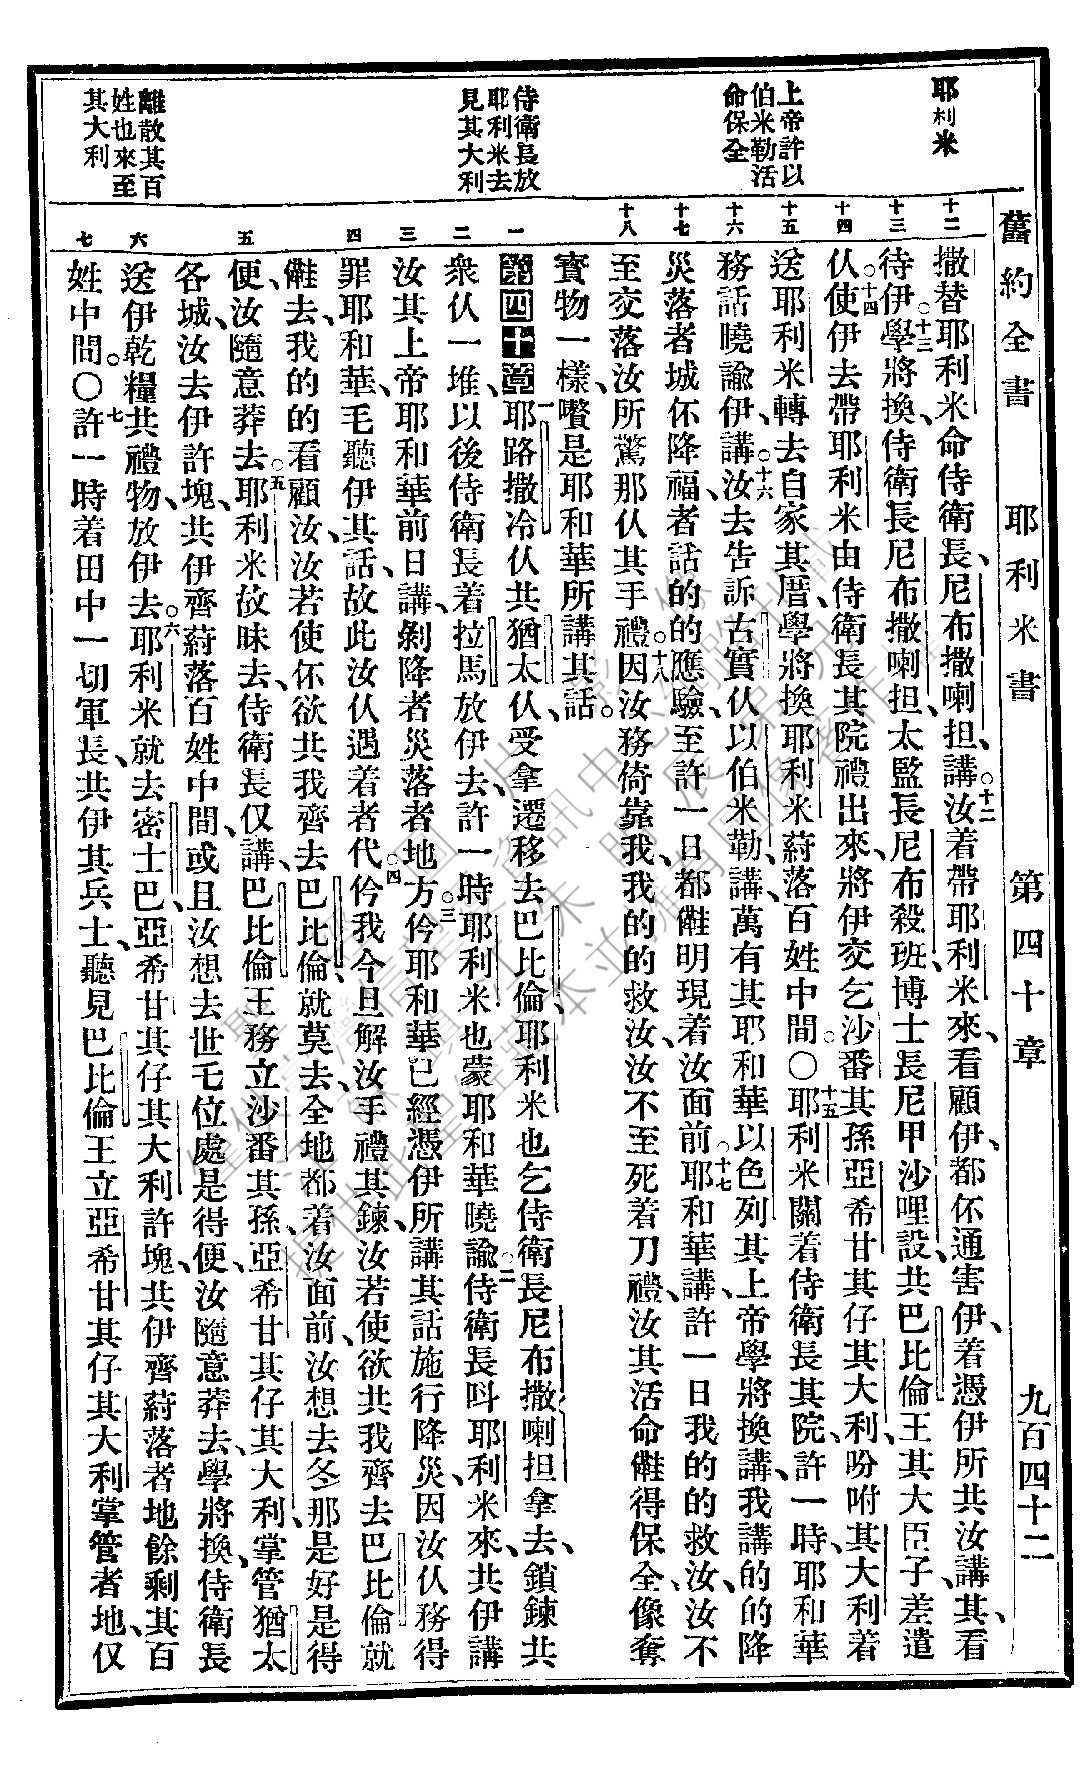 舊約全書 耶利米書 第四十章 九百四十二
耶利米
上帝許以
伯米勒活
命保全
侍衛長放
耶利米去
見其大利
離散其百
姓也來至
其大利
十二 十三 十四 十五 十六 十七 十八 一 二 三 四 五 六 七
撒替耶利米命侍衛長、尼布撒喇担、講、○十二汝着帶耶利米來、看顧伊、都伓通害伊、着憑伊所共汝講其、看
待伊、○十三學將換、侍衛長尼布撒喇担、太監長尼布殺班、博士長尼甲沙哩設、共巴比倫王其大臣子、差遣
仈、○十四使伊去帶耶利米由侍衛長其院禮出來、將伊交乞沙番其孫亞希甘其仔其大利、吩咐其大利着
送耶利米轉去自家其厝、學將換耶利米蒔落百姓中間。○十五耶利米關着侍衛長其院、許一時、耶和華
務話曉諭伊、講、○十六汝去告訴古實仈以伯米勒、講、萬有其耶和華以色列其上帝學將換講、我講的的降
災落者城伓降福、者話的的應驗、至許一日都僫明現着汝面前、○十七耶和華講、許一日我的的救汝、汝不
至交落汝所驚那仈其手禮。○十八因汝務倚靠我、我的的救汝、汝不至死着刀禮、汝其活命僫得保全、像奪
寶物一樣、嚽是耶和華所講其話。
第四十章 一耶路撒冷仈共猶太仈、受拿遷移去巴比倫、耶利米也乞侍衛長尼布撒喇担拿去、鎖鍊共
衆仈一堆、以後侍衛長着拉馬放伊去、許一時、耶利米也蒙耶和華曉諭。○二侍衛長叫耶利米來、共伊講、
汝其上帝耶和華前日講、剝降者災落者地方、○三伱耶和華已經憑伊所講其話施行降災、因汝仈務得
罪耶和華、毛聽伊其話、故此汝仈遇着者代。○四伱我今旦解汝手禮其鍊、汝若使欲共我齊去巴比倫就
僫去、我的的看顧汝、汝若使伓欲共我齊去巴比倫、就莫去、全地都着汝面前、汝想去冬那是好是得
便、汝隨意莽去。○五耶利米故昧去、侍衛長仅講、巴比倫王務立沙番其孫、亞希甘其仔其大利、掌管猶太
各城、汝去伊許塊、共伊齊蒔落百姓中間、或且汝想去世乇位處是得便、汝隨意莽去、學將換、侍衛長
送伊乾糧共禮物、放伊去。○六耶利米就去密士巴、亞希甘其仔其大利許塊、共伊齊蒔落者地餘剩其百
姓中間。〇七許一時着田中一切軍長、共伊其兵士、聽見巴比倫王立亞希甘其仔其大利掌管者地、仅